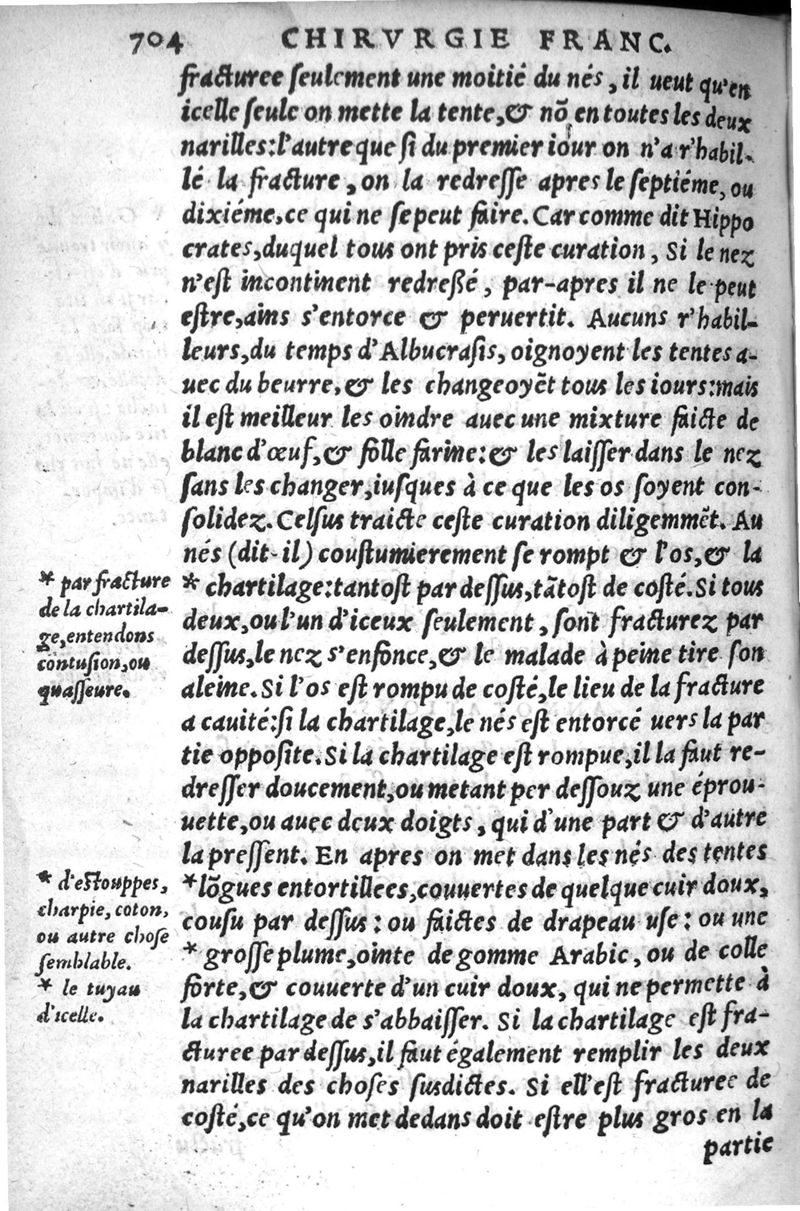 704 CHIRVRGIE FRANC.
fracturee ſeulement une moitié du nés, il ueut qu'en
icelle ſeule on mette la tente,& nõ en toutes les deux
narilles: l'autre que ſi du premier iour on n'a r'habil-
lé la fracture, on la redreſſe apres le ſeptiéme, ou
dixiéme, ce qui ne ſe peut faire. Car comme dit Hippo
crates, duquel tous ont pris ceſte curation, Si le nez
n'eſt incontinent redreßé, par-apres il ne le peut
eſtre, ains s'entorce & peruertit. Aucuns r'habil-
leurs, du temps d'Albucraſis, oignoyent les tentes a-
uec du beurre,& les changeoyẽt tous les iours: mais
il eſt meilleur les oindre auec une mixture faicte de
blanc d'œuf,& folle farine:& les laiſſer dans le nez
ſans les changer, iuſques à ce que les os ſoyent con-
ſolidez. Celſus traicte ceſte curation diligemmẽt. Au
nés (dit-il) couſtumierement ſe rompt & l'os,& la
* chartilage: tantoſt par deſſus, tãtoſt de coſté. Si tous
deux, ou l'un d'iceux ſeulement, ſont fracturez par
deſſus, le nez s'enfonce,& le malade à peine tire ſon
aleine. Si l'os eſt rompu de coſté, le lieu de la fracture
a cauité: ſi la chartilage, le nés eſt entorcé uers la par
tie oppoſite. Si la chartilage eſt rompue, il la faut re-
dreſſer doucement, ou metant per deſſouz une éprou-
uette, ou auec deux doigts, qui d'une part & d'autre
la preſſent. En apres on met dans les nés des tentes
* lõgues entortillees, couuertes de quelque cuir doux,
couſu par deſſus: ou faictes de drapeau uſe: ou une
* groſſe plume, ointe de gomme Arabic, ou de colle
forte,& couuerte d'un cuir doux, qui ne permette à
la chartilage de s'abbaiſſer. Si la chartilage eſt fra-
cturee par deſſus, il faut également remplir les deux
narilles des choſes ſusdictes. Si ell'eſt fracturee de
coſté, ce qu'on met dedans doit eſtre plus gros en la
partie
* par fracture
de la chartila-
ge, entendons
contuſion, ou
quaſſeure.
* d'eſtouppes,
charpie, coton,
ou autre choſe
ſemblable.
* le tuyau
d'icelle.